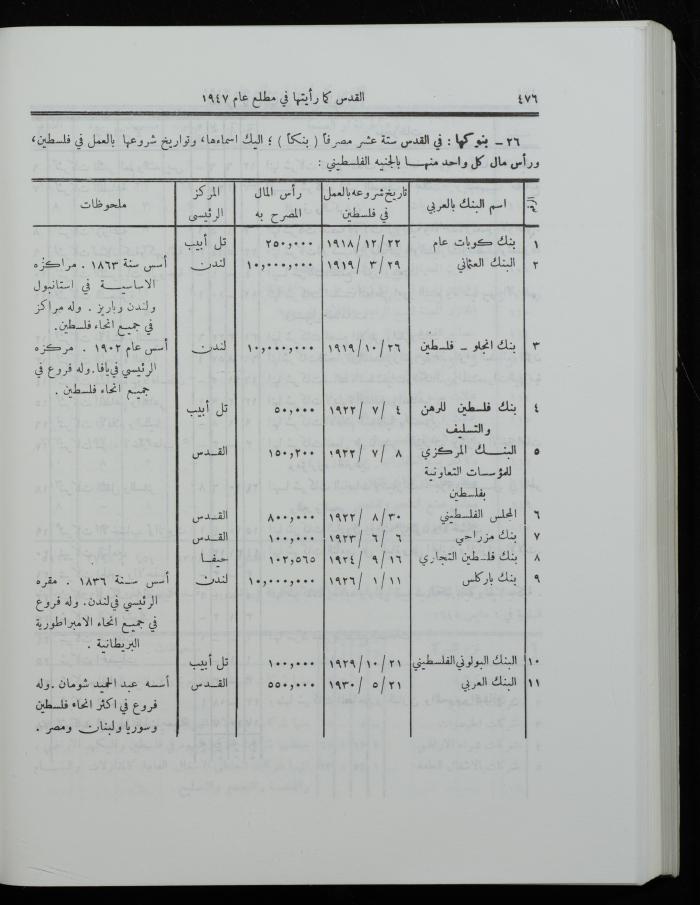 ٤٧٦ القدس كما رأيتها في مطلع عام ١٩٤٧
٢٦ – بنوكها : في القدس ستة عشر مصرفاً ( بنكاً ) ؛ اليك اسماءها، وتواريخ شروعها بالعمل في فلسطين،
ورأس مال كل واحد منهــا بالجنيه الفلسطيني :
الرقم اسم البنك بالعربي تاريخ شروعه بالعمل رأس المال المركز ملحوظات
في فلسطين المصرح به الرئيسى
١ بنك كوبات عام ١٩١٨/١٢/٢٢ ٢٥٠,٠٠٠ تل أبيب
٢ البنك العثماني ١٩١٩/ ٣ /٢٩ ١٠,٠٠٠,٠٠٠ لندن أسس سنة ١٨٦٣ . مراكزه
الاساسيـــة في استانبول
ولندن وباريز . وله مراكز
في جميع انحاء فلسطين.
٣ بنك انجلو – فلسطين ١٩١٩/١٠/٢٦ ١٠,٠٠٠,٠٠٠ لندن أسس عام ١٩٠٢ . مركزه
الرئيسي في يافا.وله فروع في
جميع انحاء فلسطين .
٤ بنك فلسطين للرهن ١٩٢٢/ ٧ / ٤ ٥٠,٠٠٠ تل أبيب
والتسليف
٥ البنــك المركزي ١٩٢٢/ ٧ / ٨ ١٥٠,٢٠٠ القـدس
للمؤسسات التعاونية
بفلسطين
٦ المجلس الفلسطيني ١٩٢٢/ ٨ /٣٠ ٨٠٠,٠٠٠ القـدس
٧ بنك مزراحي ١٩٢٣/ ٦ / ٦ ١٠٠,٠٠٠ القـدس
٨ بنك فلسطين التجاري ١٩٢٤/ ٩ /١٦ ١٠٢,٥٦٥ حيفــا
٩ بنك باركلس ١٩٢٦/ ١ /١١ ١٠,٠٠٠,٠٠٠ لندن أسس سنـة ١٨٣٦ . مقره
الرئيسي في لندن. وله فروع
في جميع انحاء الامبراطورية
البريطانية .
١٠ البنك البولوني الفلسطيني ١٩٢٩/١٠/٢١ ١٠٠,٠٠٠ تل أبيب
١١ البنك العربي ١٩٣٠/ ٥ /٢١ ٥٥٠,٠٠٠ القـدس أسسه عبد الحميد شومان .وله
فروع في اكثر انحاء فلسطين
وسوريا ولبنان ومصر .